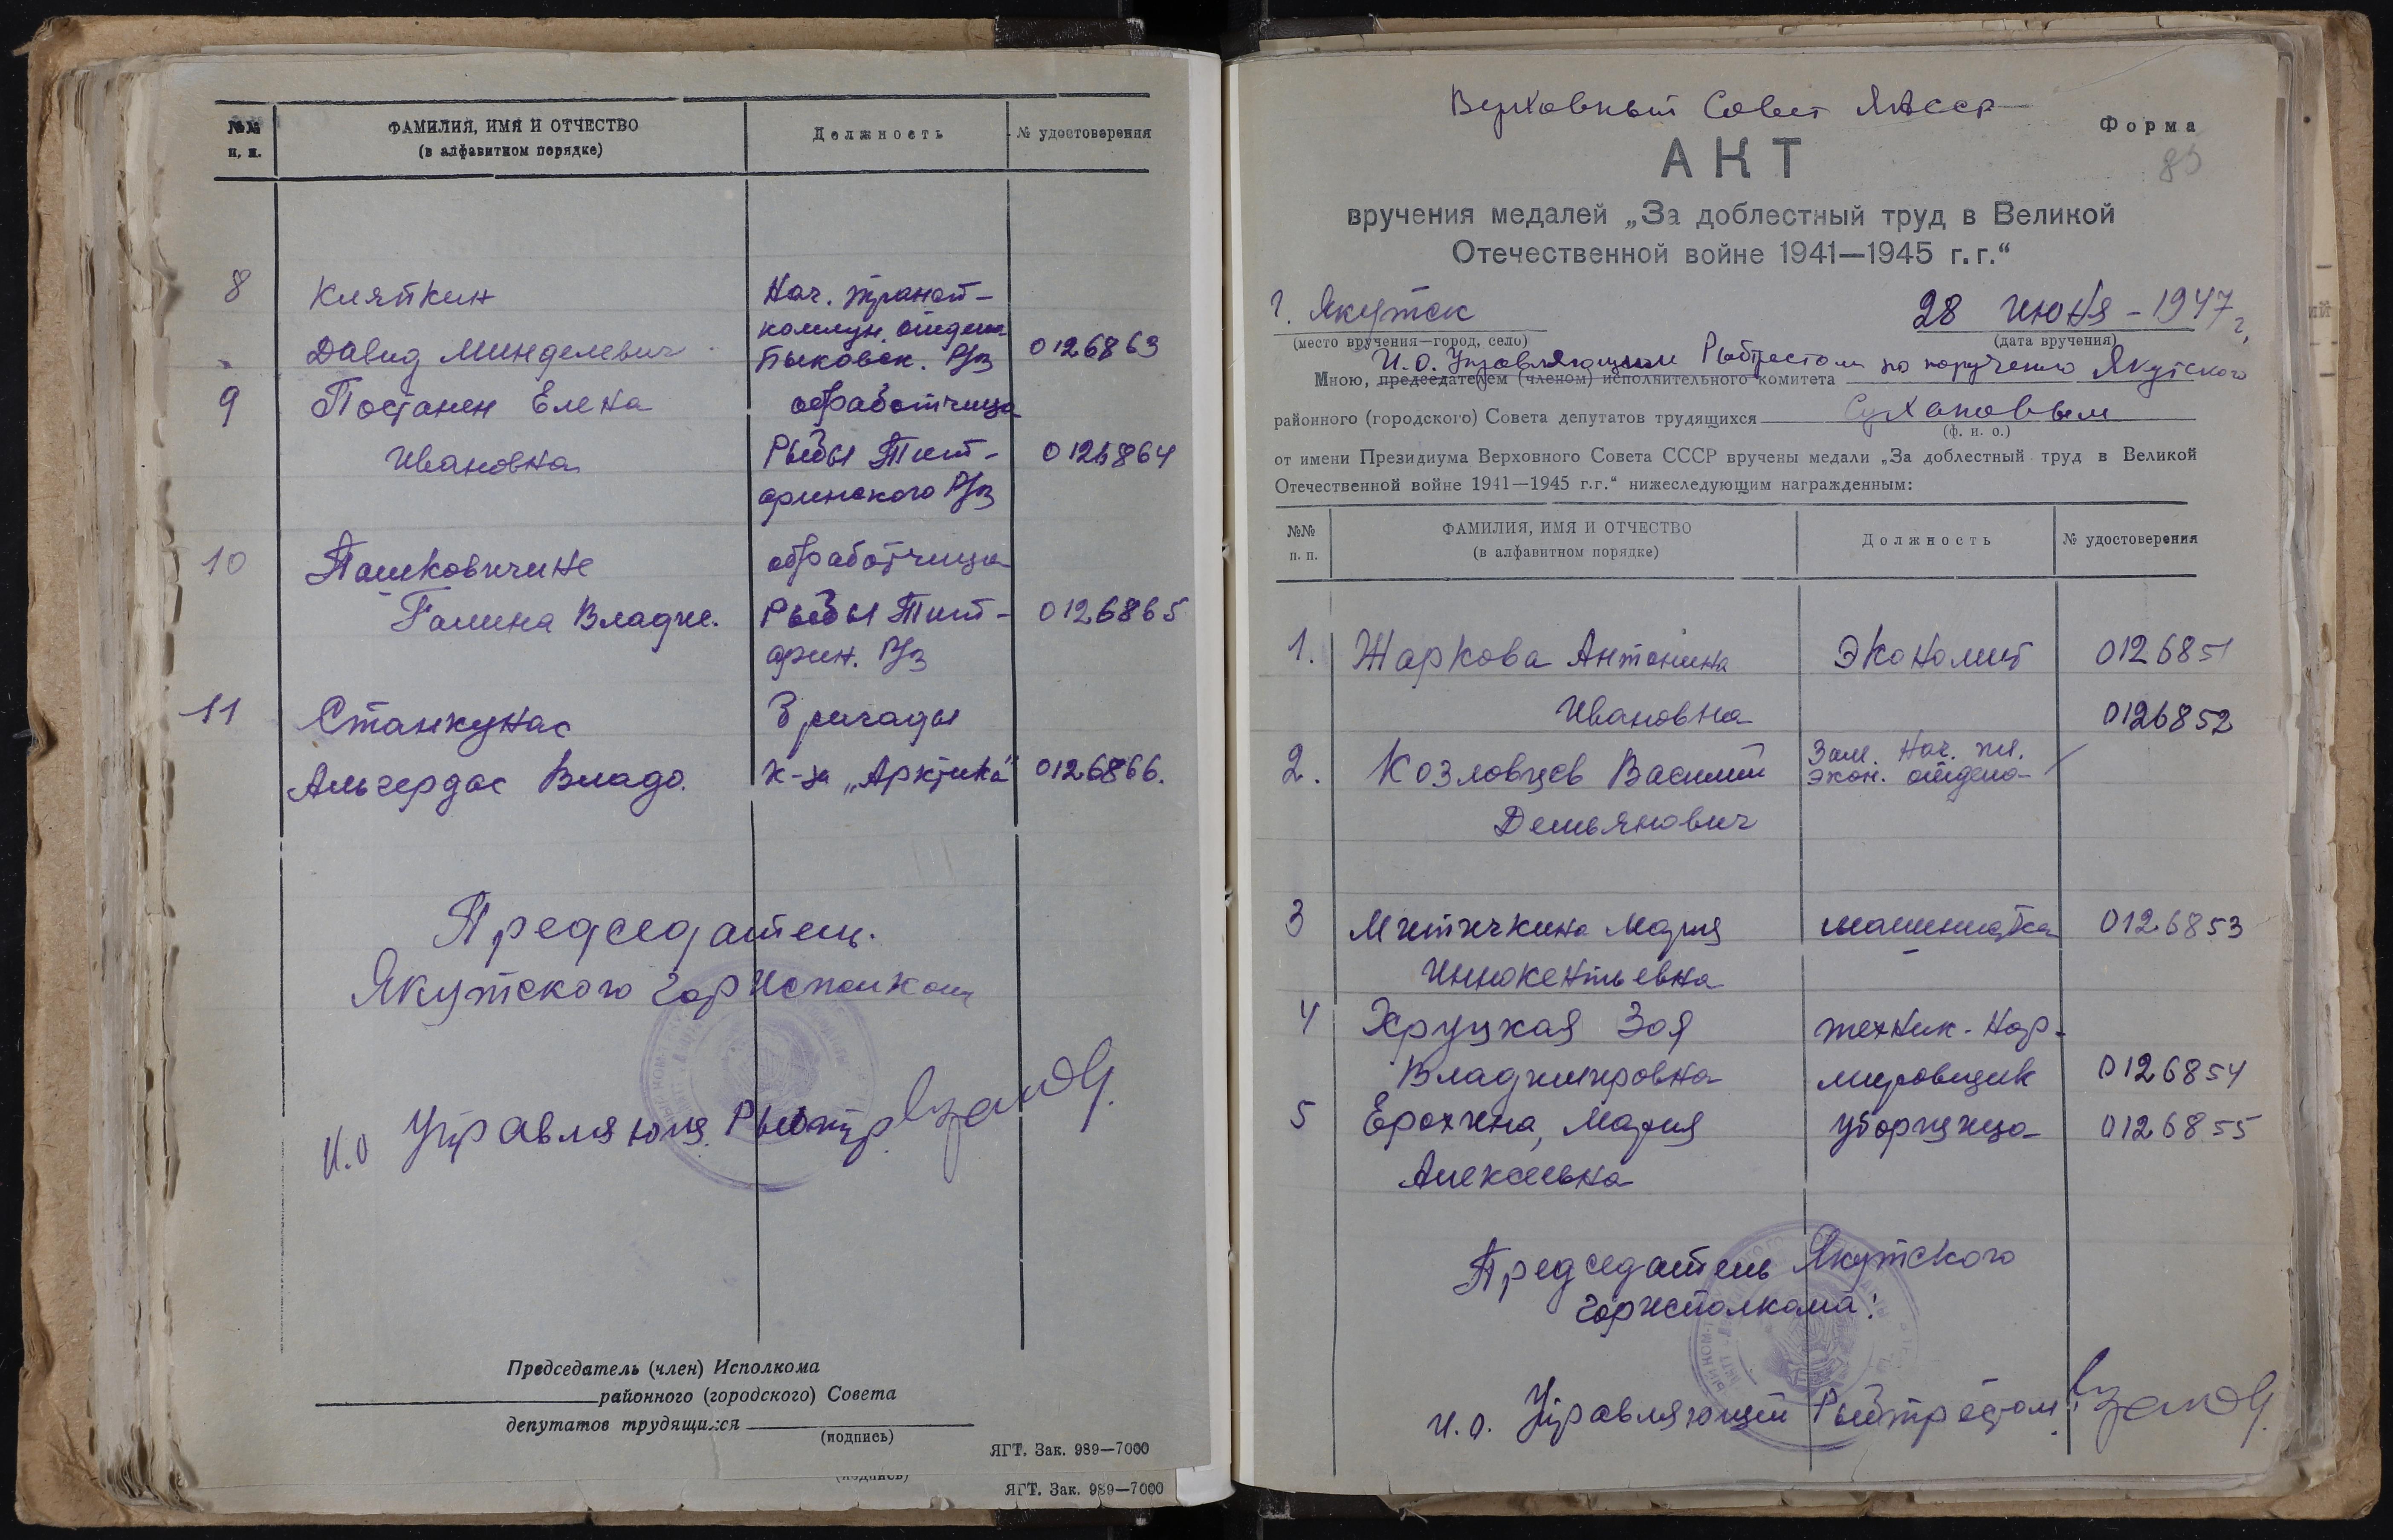 №№ п. п.
ФАМИЛИЯ, ИМЯ И ОТЧЕСТВО
(в алфавитном порядке)
Должность
№ удостоверения
8 Кляткин Нач. трансп-
коммун. отдела
Давид Минделевич Быковск. Р/з 0126863
9 Постанен Елена обработчица
Ивановна Рыбы Тит- 0126864
аринского Р/з
10 Пашковичине обработчица
Галина Владис. Рыбы Тит- 0126865
арин. Р/з
11 Станкунас Бригады
Альгердас Владо. К-за „Арктика" 0126866.
Председатель
Якутского Горисполкома
И.о Управляющ. Рыбтр
Председатель (член) Исполкома
районного (городского) Совета
депутатов трудящихся
(подпись)
ЯГТ. Зак. 989—7000
(подпись)
ЯГТ. Зак. 989—7000
Верховный Совет ЯАССР
Форма
83
АКТ
вручения медалей „За доблестный труд в Великой
Отечественной войне 1941—1945 г.г."
г. Якутск 28 июня - 1947 г,
(место вручения—город, село) (дата вручения)
И.О. Управляющим Рыбтрестом по поручению Якутского
Мною, председателем (членом) исполнительного комитета
районного (городского) Совета депутатов трудящихся Сухановым
(ф. и. о.)
от имени Президиума Верховного Совета СССР вручены медали „За доблестный труд в Великой
Отечественной войне 1941—1945 г.г." нижеследующим награжденным:
№№ п. п.
ФАМИЛИЯ, ИМЯ И ОТЧЕСТВО
(в алфавитном порядке)
Должность
№ удостоверения
1. Жаркова Антонина Экономист 0126851
Ивановна 0126852
2. Козловцев Василий Зам. Нач. пл.
экон. отдела
Демьянович
3 Митичкина Мария машинистка 0126853
Иннокентьевна
4 Хруцкая Зоя техник-нор-
Владимировна мировщик 0126854
5 Ерохина, Мария уборщица 0126855
Алексеевна
Председатель Якутского
Горисполкома:
И.о. Управляющий Рыбтрестом: